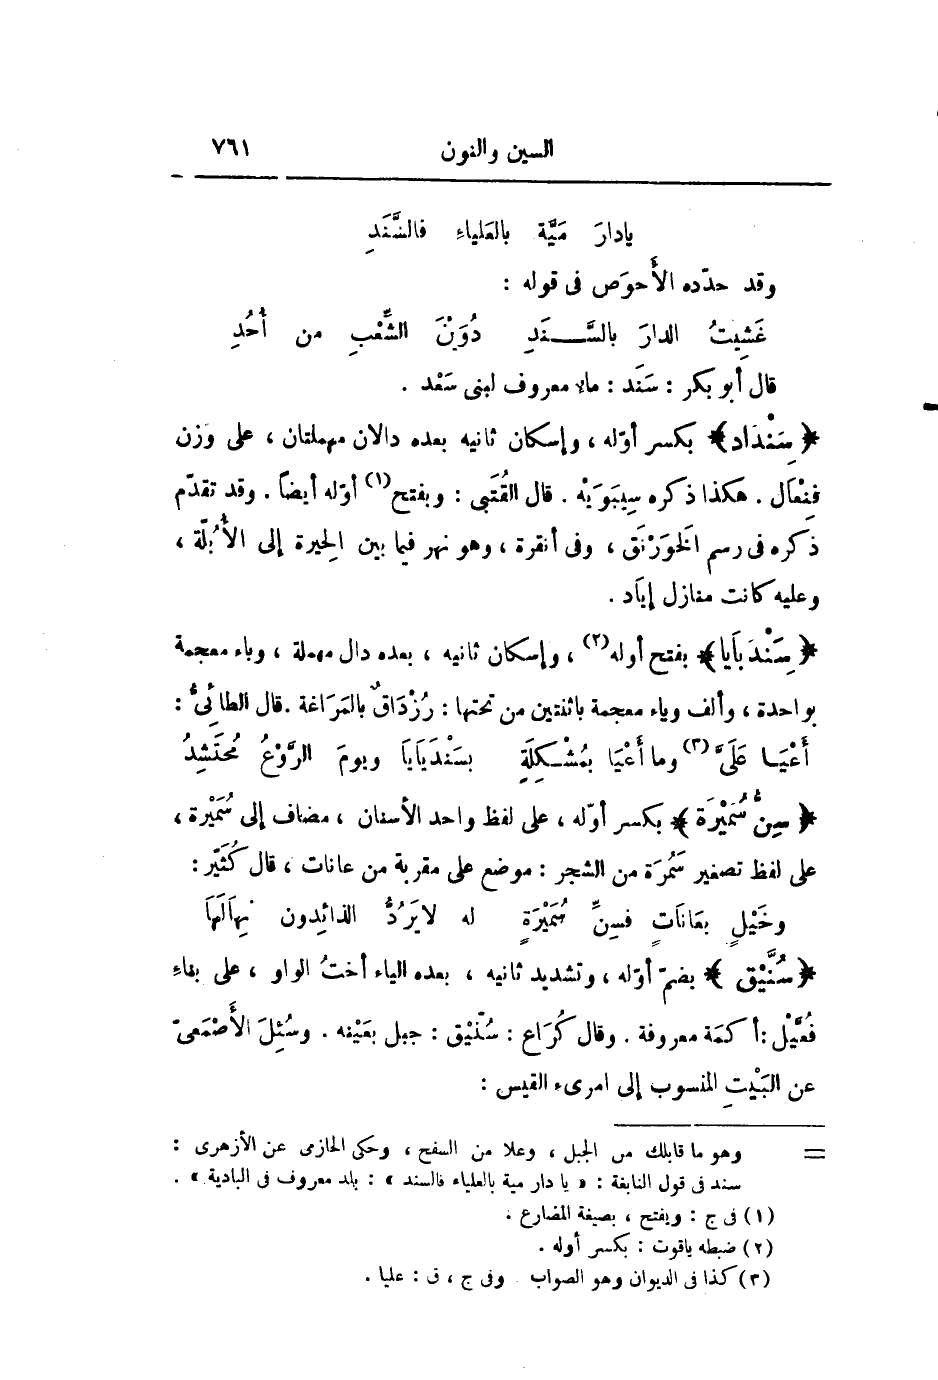 السين والنون ٧٦١
يادارَ مَيَّة بالعَلياءِ فالسَّنَدِ
وقد حدّده الأَحوَص فى قوله :
غَشِيتُ الدارَ بالسَّـــنَدِ دُوَيْنَ الشِّعْبِ من أُحُدِ
قال أبو بكر : سَنَد : ماء معروف لبنى سَعْد .
﴿سِنْدَاد﴾ بكسر أوّله ، وإسكان ثانيه بعده دالان مهملتان ، على وَزن
فِنْعَال . هكذا ذكره سِيبَوَيْه . قال القُتَبى : وبفتح(١) أوّله أيضاً . وقد تقدّم
ذكره فى رسم الخَوَرْنَق ، وفى أنقرة ، وهو نهر فيما بين الحِيرة إلى الأُبُلّة ،
وعليه كانت منازل إيَاد .
﴿سِنْدَبَايا﴾ بفتح أوله(٢) ، وإسكان ثانيه ، بعده دال مهملة ، وباء معجمة
بواحدة ، وألف وياء معجمة باثنتين من تحتها : رُزْدَاقٌ بالمَرَاغة . قال الطائِىُّ :
أَعْيَـا عَلَىَّ(٣) وما أَعْيَا بمُشْـكِلَةٍ بسَنْدَبَايَا ويومَ الرَّوْعُ مُحْتَشِدُ
﴿سِنُّ سُمَيْرَة﴾ بكسر أوّله ، على لفظ واحد الأسنان ، مضاف إلى سُمَيْرة ،
على لفظ تصغير سَمُرَة من الشجر : موضع على مقربة من عانات ، قال كُثَيّر :
وخَيْلٍ بعَانَاتٍ فسِنِّ سُمَيْرَةٍ له لا يَرُدُّ الذائِدون نِهَالَهَا
﴿سُنَّيْق﴾ بضمّ أوّله ، وتشديد ثانيه ، بعده الياء أختُ الواو ، على بناء
فُعَّيْل : أكمَة معروفة . وقال كُرَاع : سُنّيْق : جبل بعَيْنه . وسُئِلَ الأَصْمَعىّ
عن البَيْتِ المنسوب إلى امرىء القيس :
= وهو ما قابلك من الجبل ، وعلا من السفح ، وحكى الحازمى عن الأزهرى :
سند فى قول النابغة : « يا دار مية بالعلياء فالسند » : بلد معروف فى البادية » .
(١) فى ج : ويفتح ، بصيغة المضارع .
(٢) ضبطه ياقوت : بكسر أوله .
(٣) كذا فى الديوان وهو الصواب وفى ج ، ق : عليا .